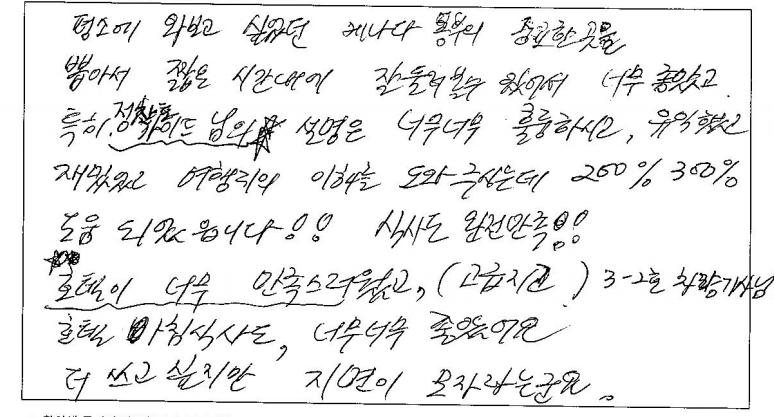 평소에 와보고 싶었던 케나다 동부의 중요한 곳을
뽑아서 짧은 시간내에 잘 둘러볼수 있어서 너무 좋았고
특히, 가이드 님의 설명은 너무너무 훌륭하시고, 유익했고
재밌었고 여행지의 이해를 도와 주시는데 200% 300%
도움 되었습니다!! 식사도 완전만족!!
호텔이 너무 만족스러웠고, (고급지고) 3-2호 차량기사님
호텔 아침식사도, 너무너무 좋았어요
더 쓰고 싶지만 지면이 모자라는군요.